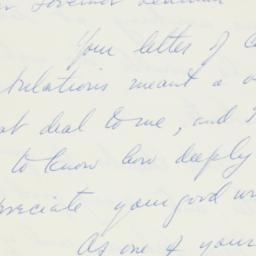 Governor Lehman
Your letter of C
tulations meant a
at deal to me, and I
to know how deeply
preciate your good w
As one of your